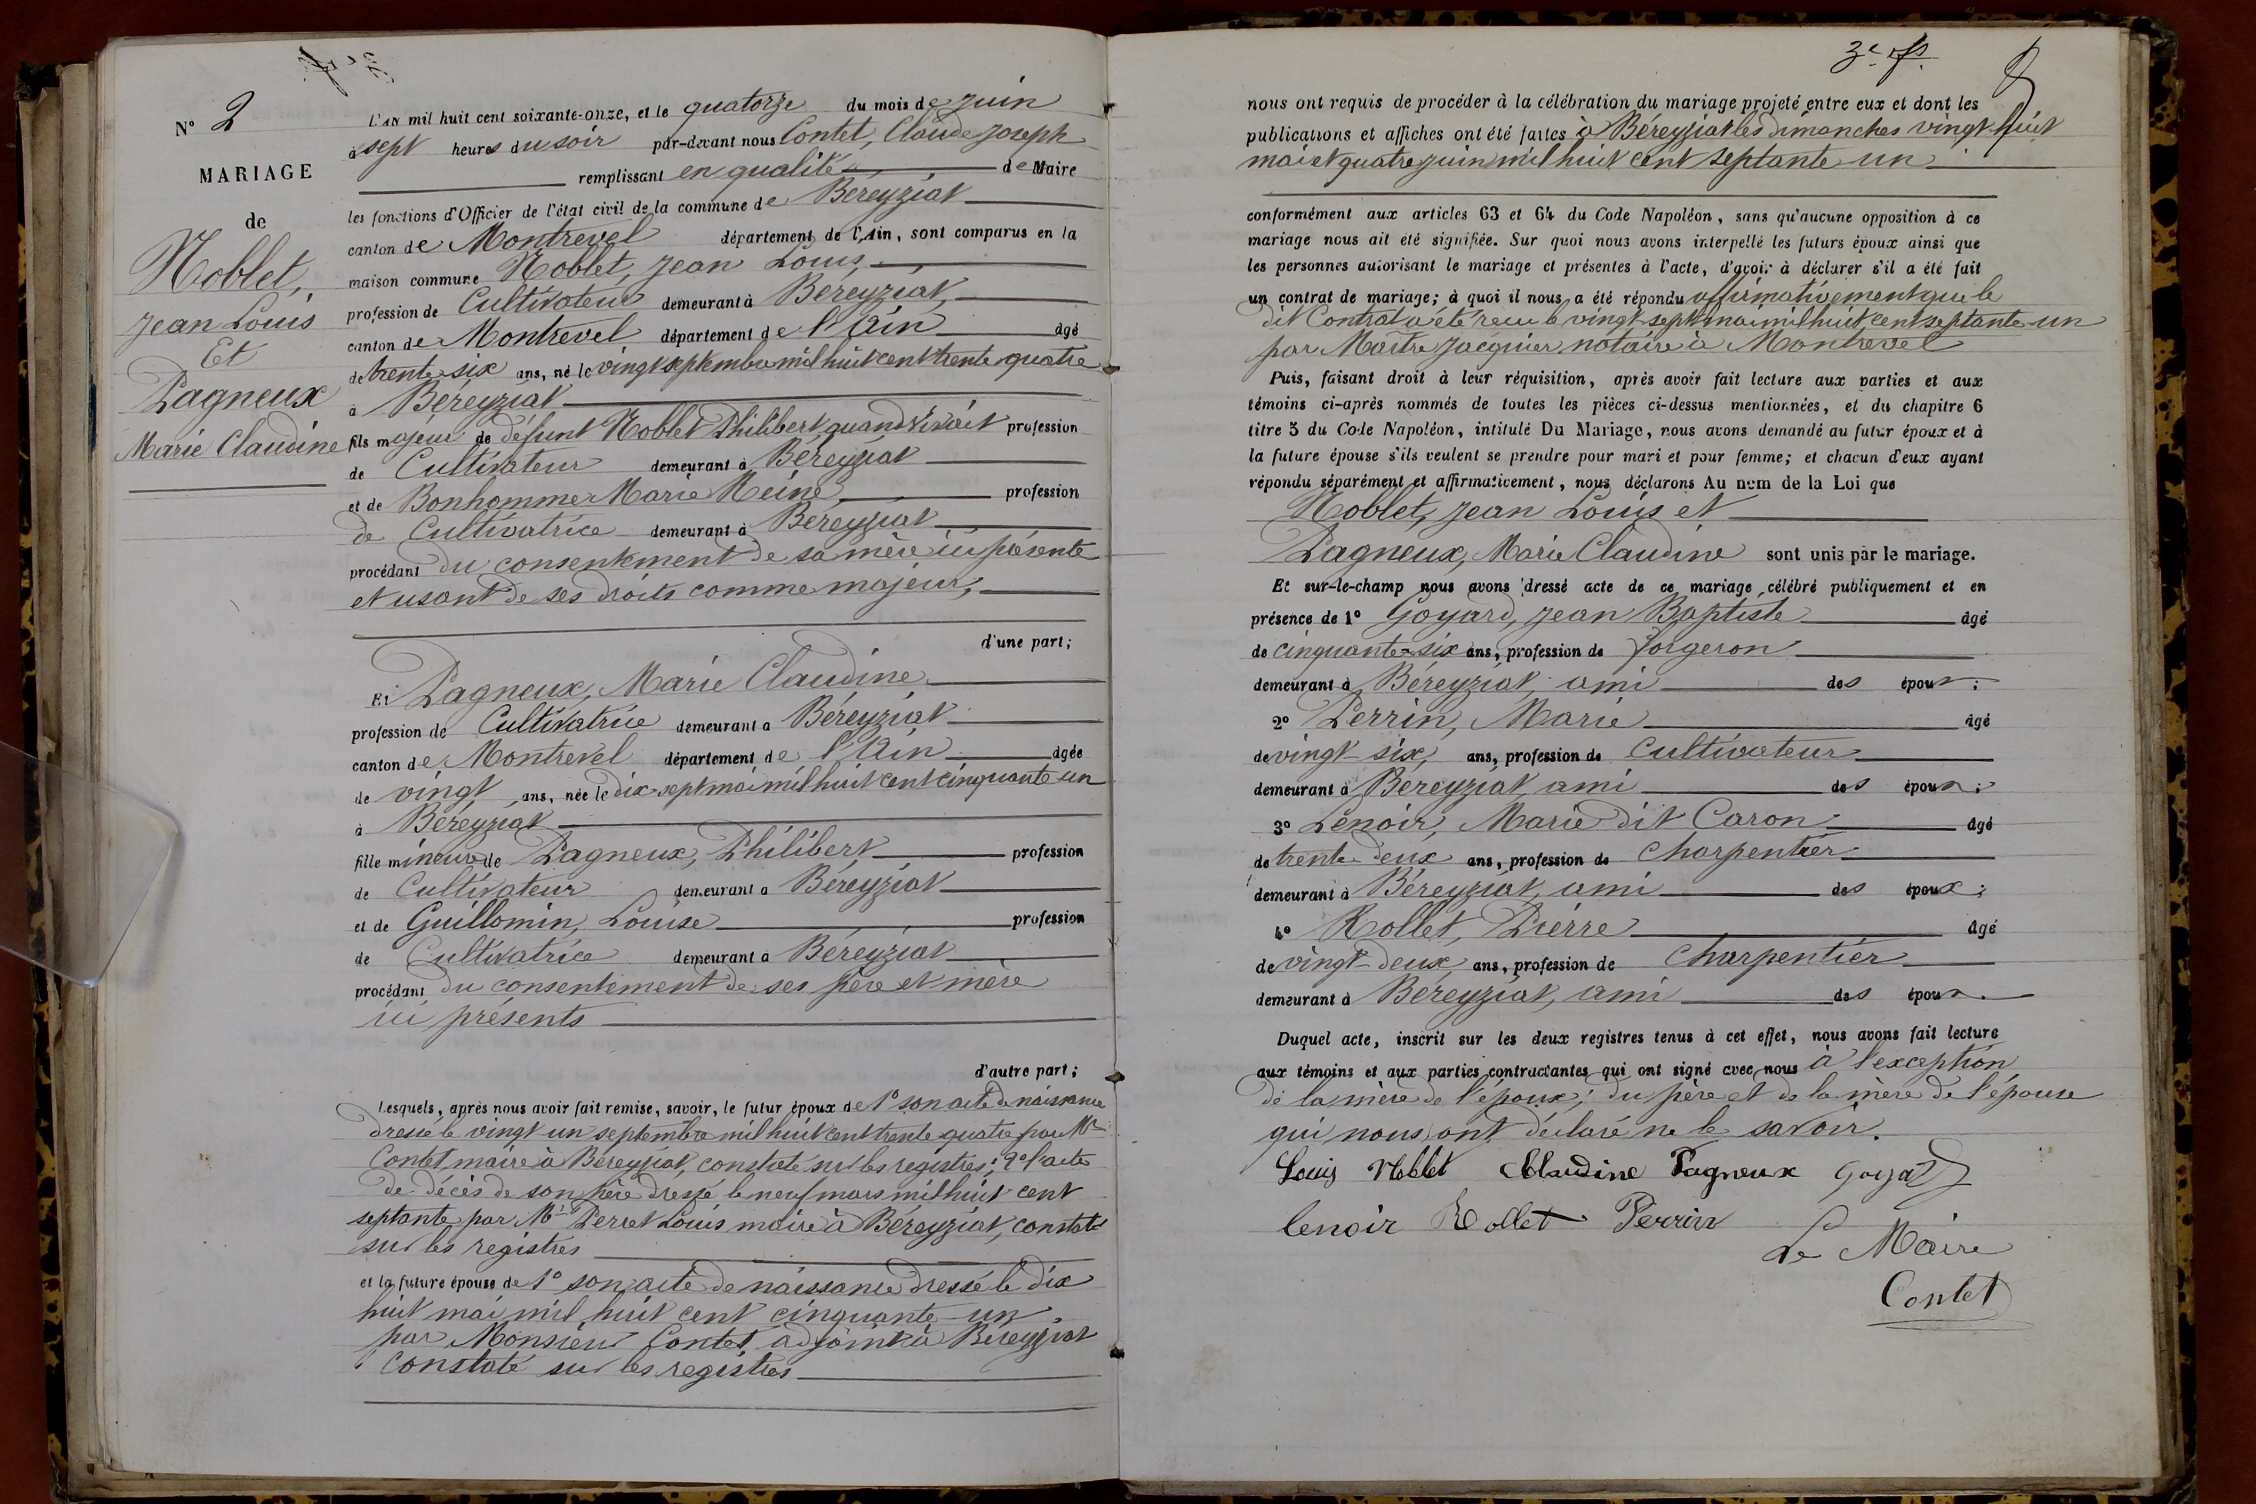 N° 2
MARIAGE
de
Noblet,
Jean Louis
Et
Pagneux
Marie Claudine
L'AN mil huit cent soixante-onze, et le quatorze du mois de juin
à sept heures du soir par-devant nous Contet, Claude Joseph
remplissant en qualité de Maire
les fonctions d'Officier de l'état civil de la commune de Béreyziat
canton de Montrevel département de l'Ain, sont comparus en la
maison commune Noblet, Jean Louis,
profession de Cultivateur demeurant à Béreyziat,
canton de Montrevel département de l'Ain âgé
de trente-six ans, né le vingt septembre mil huit cent trente quatre
à Béreyziat
fils majeur de défunt Noblet Philibert, quand vivait profession
de Cultivateur demeurant à Béreyziat
et de Bonhomme Marie Reine profession
de Cultivatrice demeurant à Béreyziat
procédant du consentement de sa mère ici présente
et usant de ses droits comme majeur,
d'une part;
Et Pagneux, Marie Claudine
profession de Cultivatrice demeurant à Béreyziat
canton de Montrevel département de l'Ain âgée
de vingt ans, née le dix-sept mai mil huit cent cinquante-un
à Béreyziat
fille mineure de Pagneux, Philibert profession
de Cultivateur demeurant à Béreyziat
et de Guillomin, Louise profession
de Cultivatrice demeurant à Béreyziat
procédant du consentement de ses père et mère
ici présents
d'autre part;
Lesquels, après nous avoir fait remise, savoir, le futur époux de 1° son acte de naissance
dressé le vingt-un septembre mil huit cent trente quatre par Mr
Contet, maire à Béreyziat, constaté sur les registres; 2° l'acte
de décès de son père dressé le neuf mars mil huit cent
septante par Mr Perret Louis maire à Béreyziat, constaté
sur les registres
et la future épouse de 1° son acte de naissance dressé le dix
huit mai mil huit cent cinquante-un
par Monsieur Contet, adjoint à Béreyziat
constaté sur les registres
3e
nous ont requis de procéder à la célébration du mariage projeté entre eux et dont les
publications et affiches ont été faites à Béreyziat les dimanches vingt-huit
mai et quatre juin mil huit cent septante-un
conformément aux articles 63 et 64 du Code Napoléon, sans qu'aucune opposition à ce
mariage nous ait été signifiée. Sur quoi nous avons interpellé les futurs époux ainsi que
les personnes autorisant le mariage et présentes à l'acte, d'avoir à déclarer s'il a été fait
un contrat de mariage; à quoi il nous a été répondu affirmativement que le
dit Contrat a été reçu le vingt-sept mai mil huit cent septante-un
par Maître Jacquier notaire à Montrevel
Puis, faisant droit à leur réquisition, après avoir fait lecture aux parties et aux
témoins ci-après nommés de toutes les pièces ci-dessus mentionnées, et du chapitre 6
titre 5 du Code Napoléon, intitulé Du Mariage, nous avons demandé au futur époux et à
la future épouse s'ils veulent se prendre pour mari et pour femme; et chacun d'eux ayant
répondu séparément et affirmativement, nous déclarons Au nom de la Loi que
Noblet, Jean Louis et
Pagneux, Marie Claudine sont unis par le mariage.
Et sur-le-champ nous avons dressé acte de ce mariage célébré publiquement et en
présence de 1° Goyard, Jean Baptiste âgé
de cinquante-six ans, profession de forgeron
demeurant à Béreyziat, ami des époux;
2° Perrin, Marie âgé
de vingt-six, ans, profession de Cultivateur
demeurant à Béreyziat, ami des époux;
3° Lenoir, Marie dit Caron âgé
de trente-deux ans, profession de Charpentier
demeurant à Béreyziat, ami des époux;
4° Rollet, Pierre âgé
de vingt-deux ans, profession de Charpentier
demeurant à Béreyziat, ami des époux.
Duquel acte, inscrit sur les deux registres tenus à cet effet, nous avons fait lecture
aux témoins et aux parties contractantes qui ont signé avec nous à l'exception
de la mère de l'époux; du père et de la mère de l'épouse
qui nous ont déclaré ne le savoir.
Louis Noblet Claudine Pagneux Goyard
lenoir Rollet Perrin
Le Maire
Contet